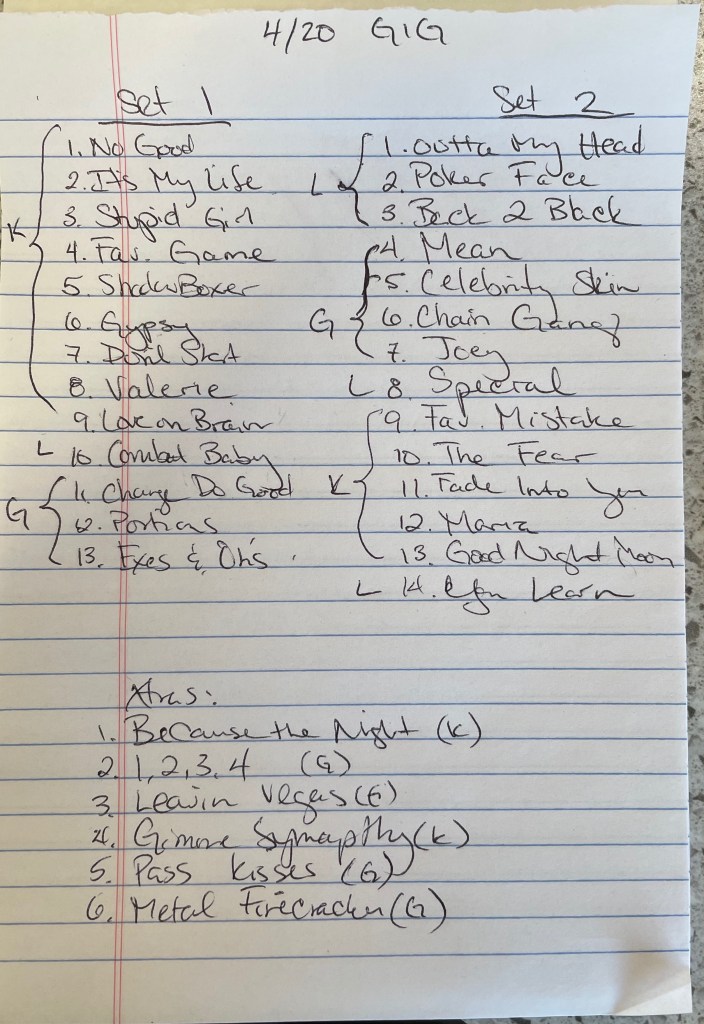 4/20 GIG
Set 1
K
1. No Good
2. It's My Life
3. Stupid Girl
4. Fav. Game
5. ShadowBoxer
6. Gypsy
7. Don't Start
8. Valerie
9. Love on Brain
L 10. Combat Baby
G
11. Change Do Good
12. Portions
13. Exes & Oh's
Set 2
L
1. Outta My Head
2. Poker Face
3. Back 2 Black
G
4. Mean
5. Celebrity Skin
6. Chain Gang
7. Joey
L 8. Special
K
9. Fav. Mistake
10. The Fear
11. Fade Into You
12. Maria
13. Good Night Moon
L 14. You Learn
Xtras:
1. Because the Night (K)
2. 1, 2, 3, 4 (G)
3. Leavin Vegas (G)
4. Gimme Symapthy (K)
5. Pass Kisses (G)
6. Metal Firecracker (G)